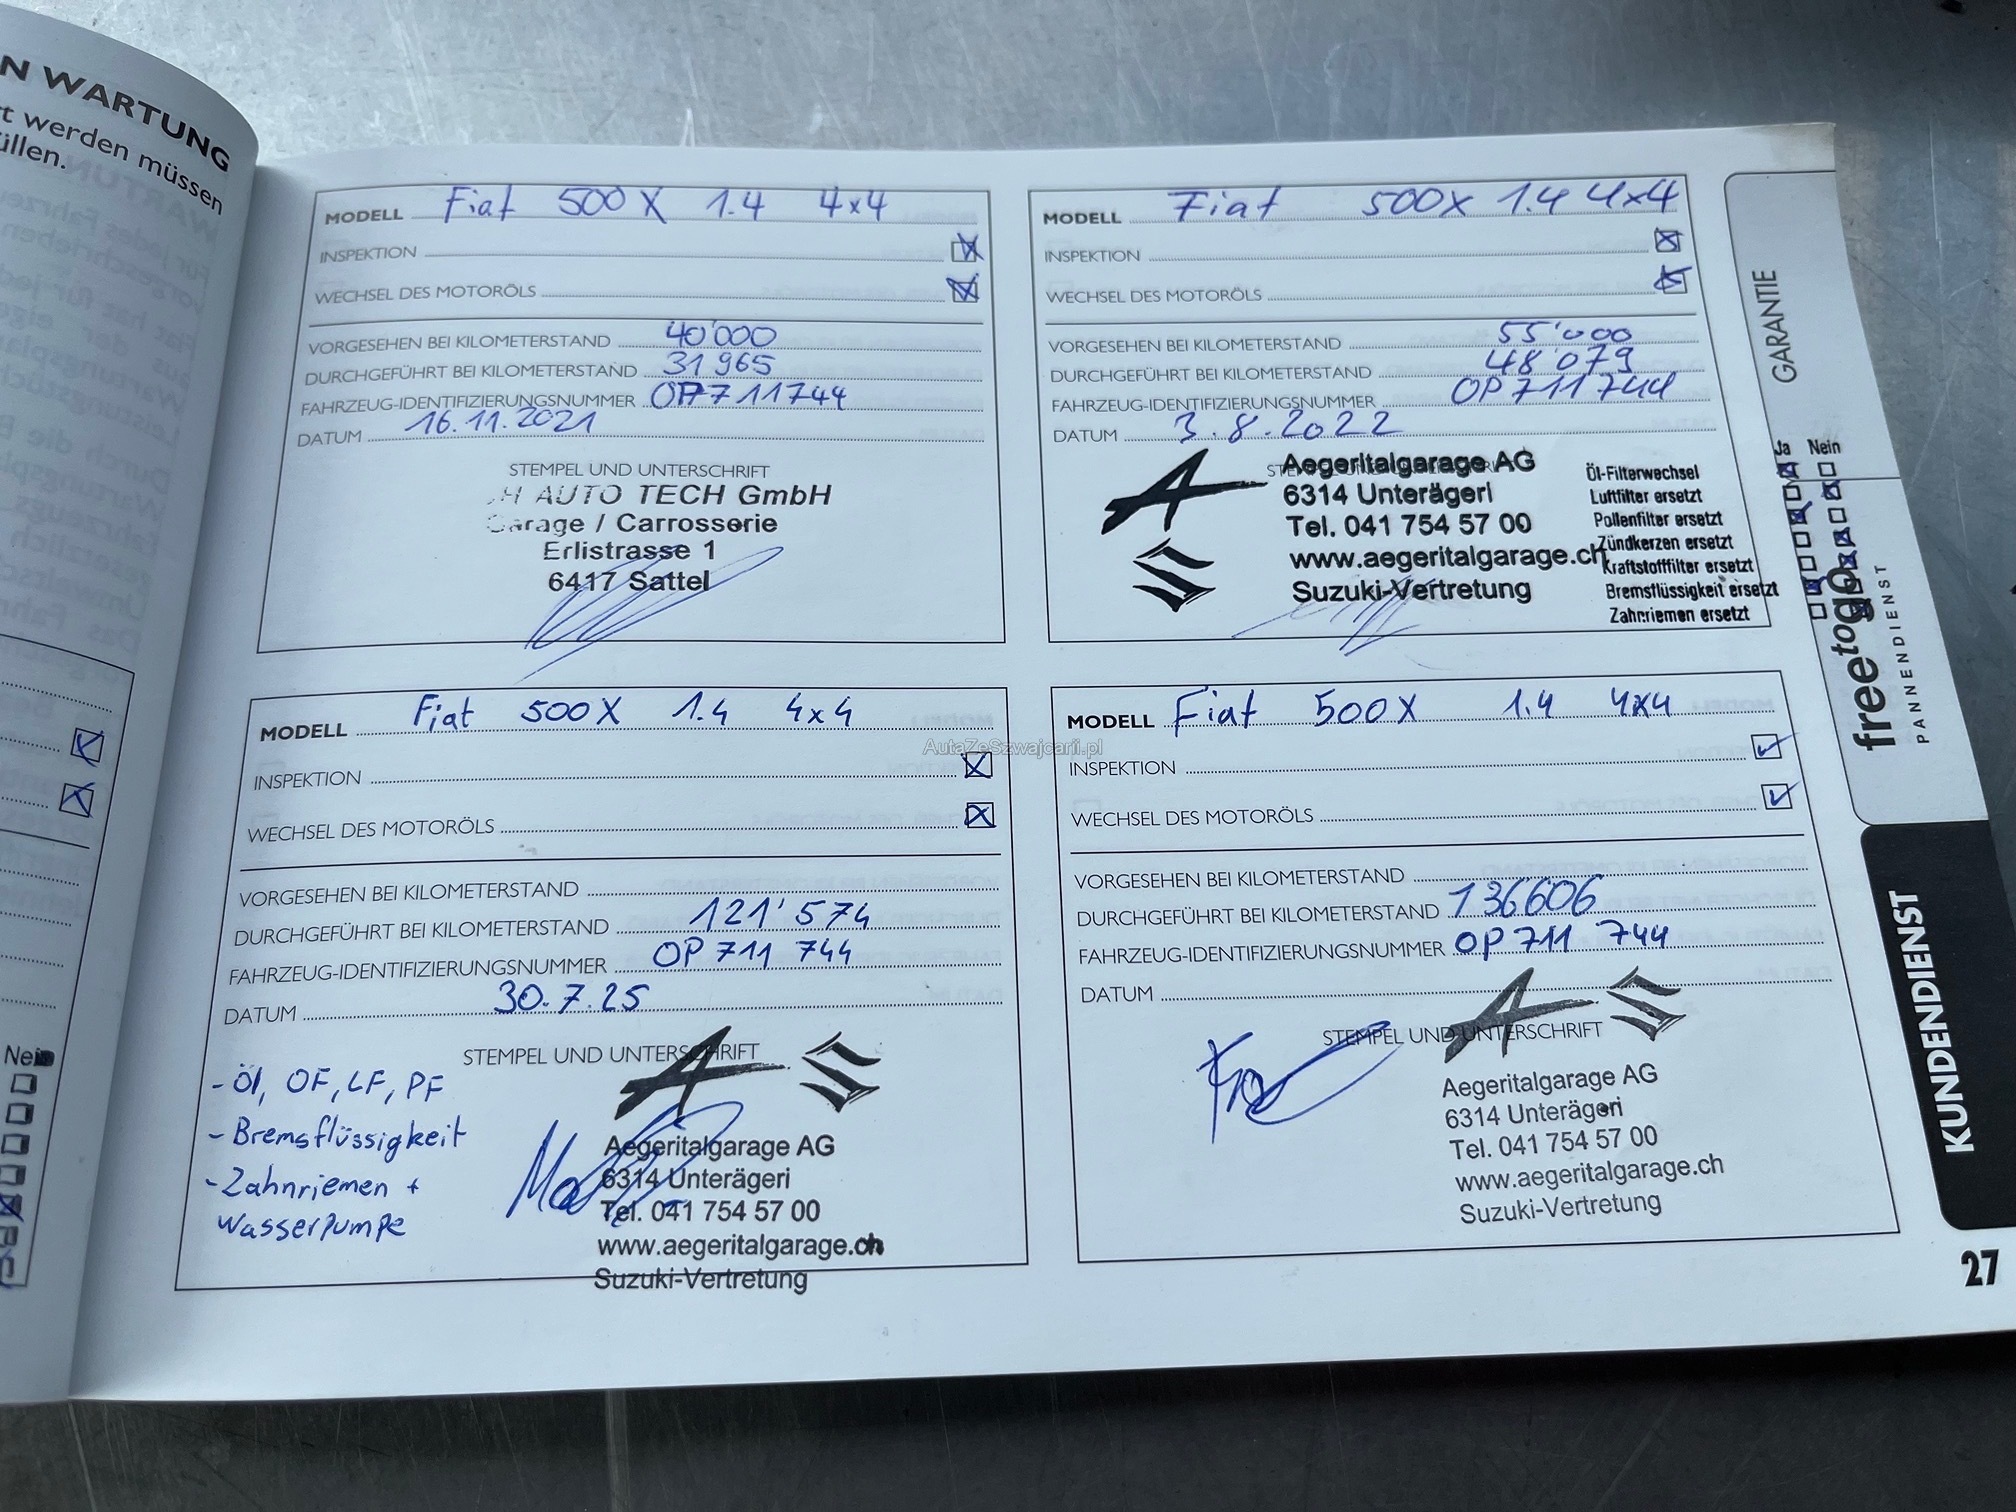 N WARTUNG
t werden müssen
üllen.
MODELL Fiat 500X 1.4 4x4
INSPEKTION
WECHSEL DES MOTORÖLS
VORGESEHEN BEI KILOMETERSTAND 40'000
DURCHGEFÜHRT BEI KILOMETERSTAND 31965
FAHRZEUG-IDENTIFIZIERUNGSNUMMER OP711744
DATUM 16.11.2021
STEMPEL UND UNTERSCHRIFT
H AUTO TECH GmbH
Garage / Carrosserie
Erlistrasse 1
6417 Sattel
MODELL Fiat 500X 1.4 4x4
INSPEKTION
WECHSEL DES MOTORÖLS
VORGESEHEN BEI KILOMETERSTAND 55'000
DURCHGEFÜHRT BEI KILOMETERSTAND 48'079
FAHRZEUG-IDENTIFIZIERUNGSNUMMER OP711744
DATUM 3.8.2022
Aegeritalgarage AG
6314 Unterägeri
Tel. 041 754 57 00
www.aegeritalgarage.ch
Suzuki-Vertretung
Ja Nein
Öl-Filterwechsel
Luftfilter ersetzt
Pollenfilter ersetzt
Zündkerzen ersetzt
Kraftstofffilter ersetzt
Bremsflüssigkeit ersetzt
Zahnriemen ersetzt
MODELL Fiat 500X 1.4 4x4
INSPEKTION
WECHSEL DES MOTORÖLS
VORGESEHEN BEI KILOMETERSTAND
DURCHGEFÜHRT BEI KILOMETERSTAND 121'574
FAHRZEUG-IDENTIFIZIERUNGSNUMMER OP 711 744
DATUM 30.7.25
STEMPEL UND UNTERSCHRIFT
- Öl, OF, LF, PF
- Bremsflüssigkeit
- Zahnriemen +
Wasserpumpe
Aegeritalgarage AG
6314 Unterägeri
Tel. 041 754 57 00
www.aegeritalgarage.ch
Suzuki-Vertretung
MODELL Fiat 500X 1.4 4x4
INSPEKTION
WECHSEL DES MOTORÖLS
VORGESEHEN BEI KILOMETERSTAND
DURCHGEFÜHRT BEI KILOMETERSTAND 136606
FAHRZEUG-IDENTIFIZIERUNGSNUMMER OP 711 744
DATUM
STEMPEL UND UNTERSCHRIFT
Aegeritalgarage AG
6314 Unterägeri
Tel. 041 754 57 00
www.aegeritalgarage.ch
Suzuki-Vertretung
GARANTIE
freetogo
PANNENDIENST
KUNDENDIENST
27
Nein
AutaZeSzwajcarii.pl